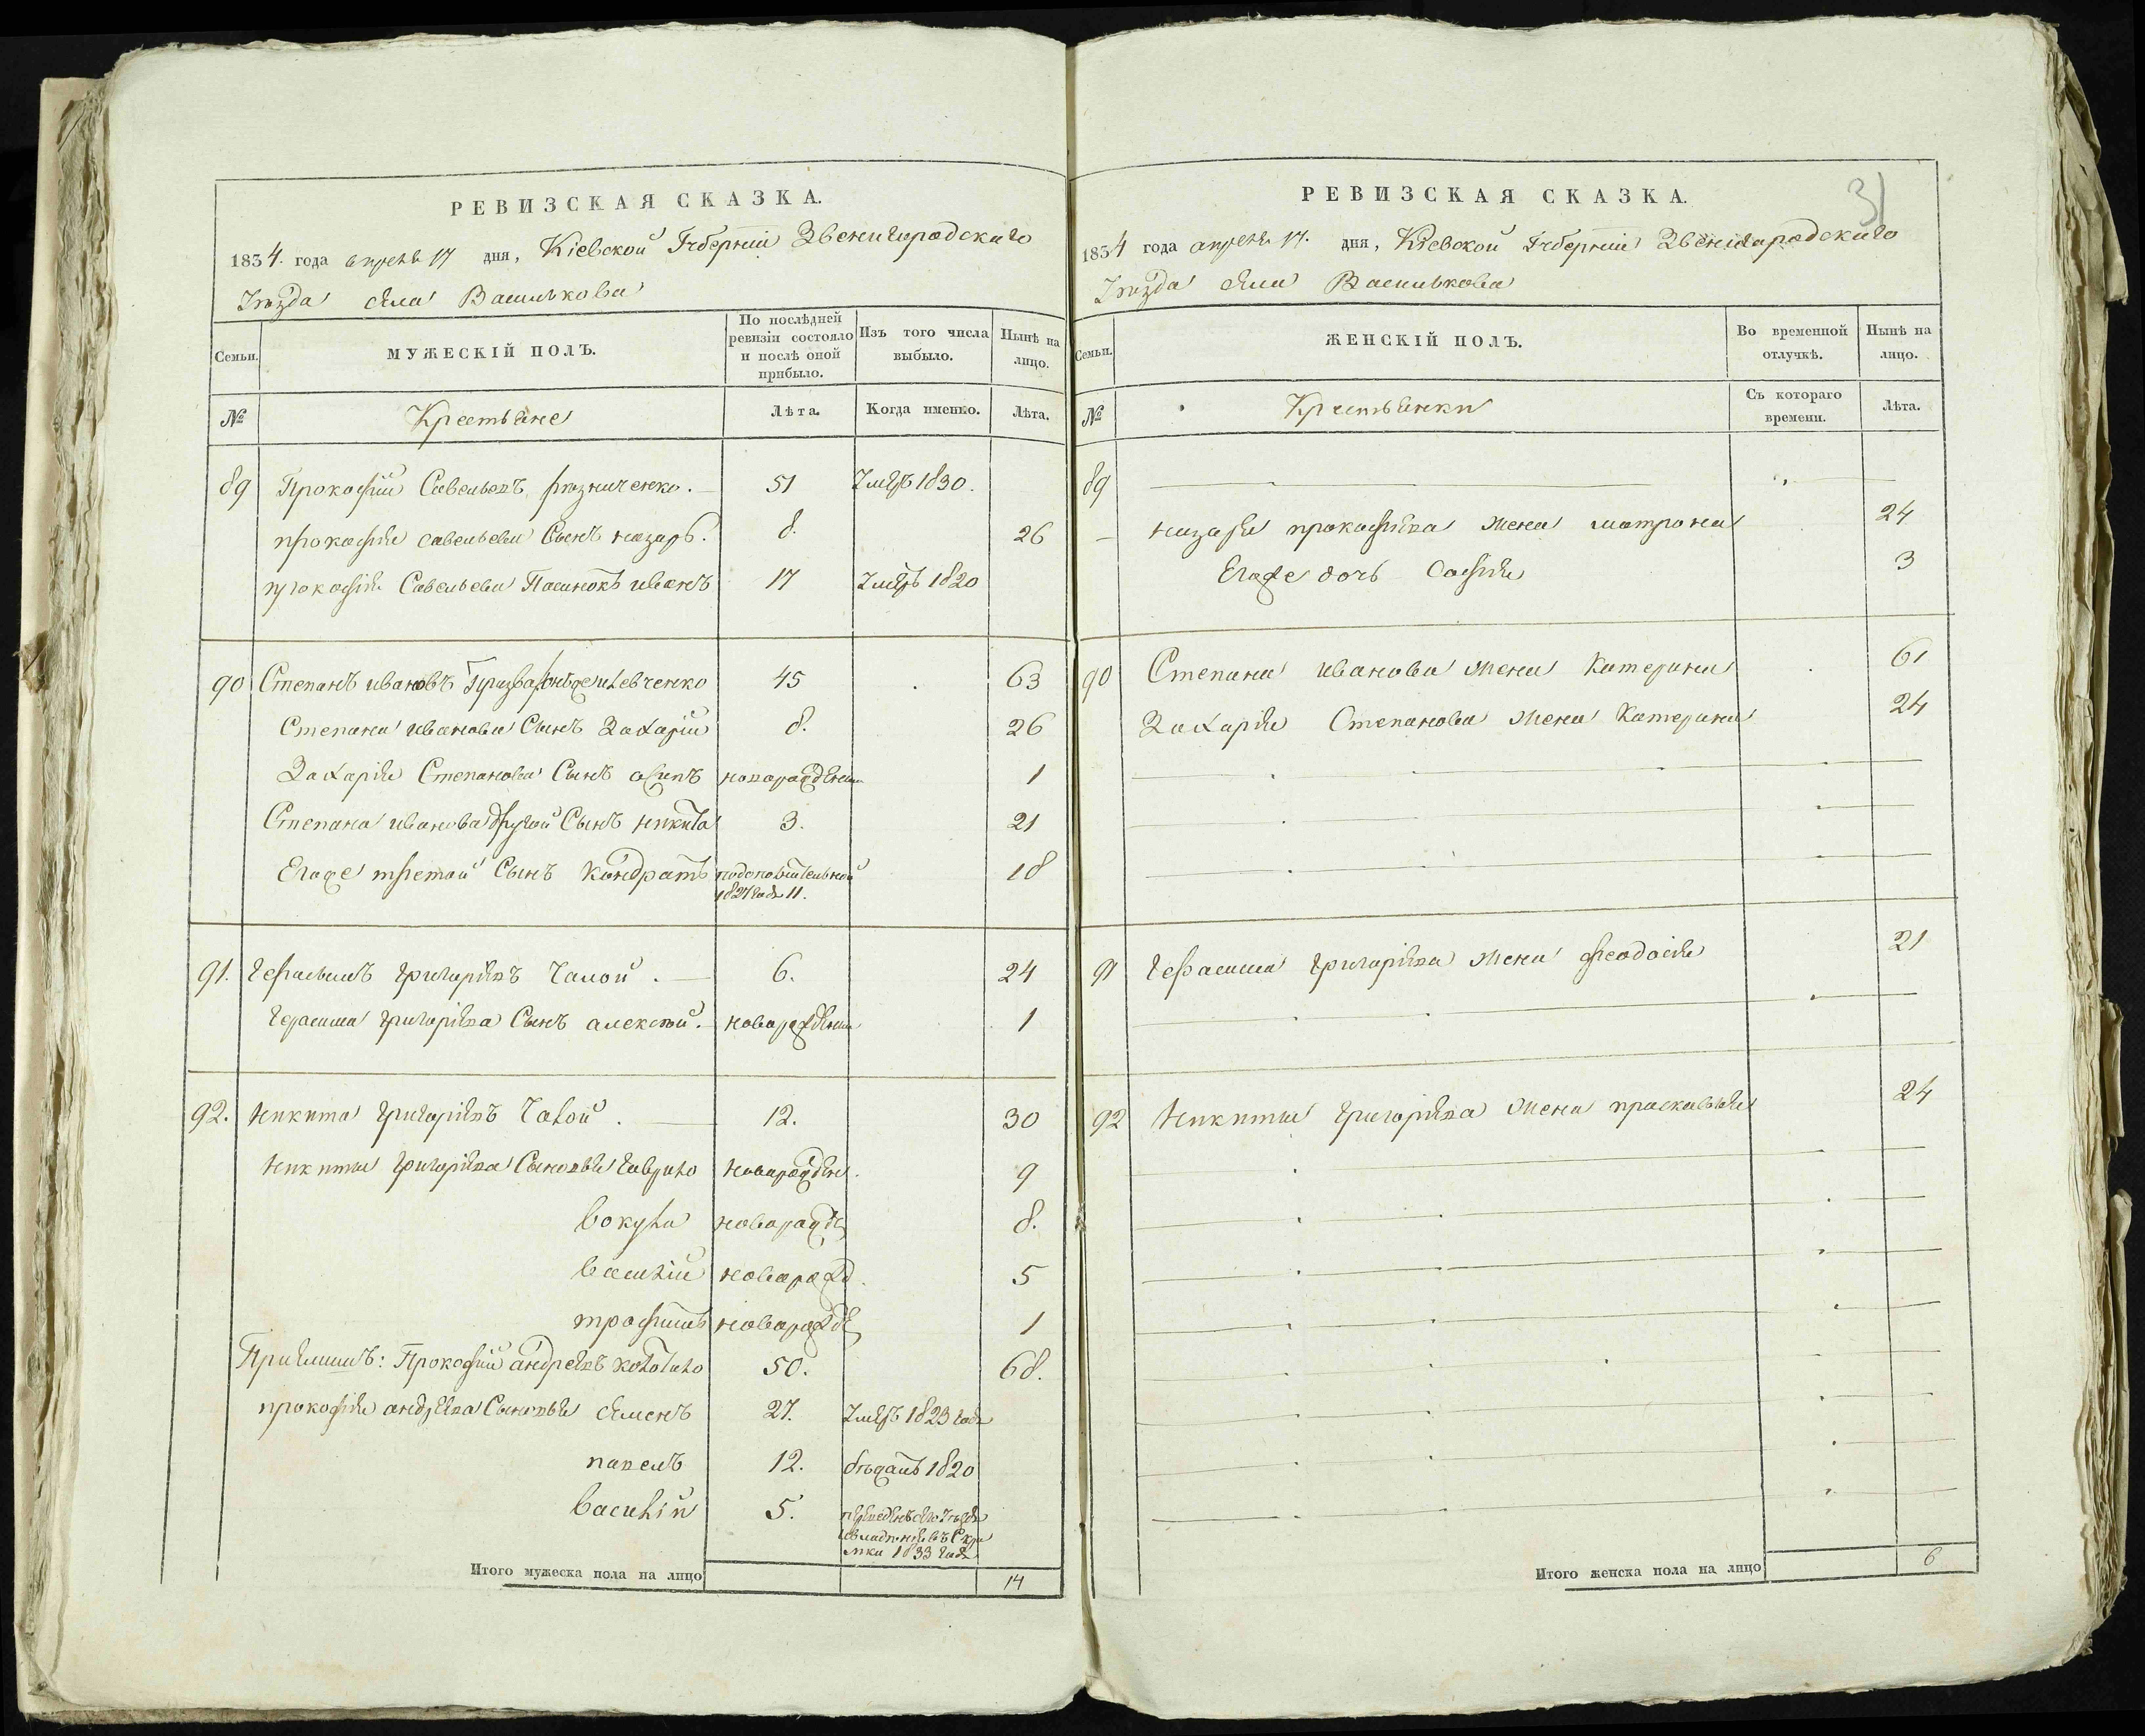 РЕВИЗСКАЯ СКАЗКА.
1834. года апреля 17 дня, Кіевской Губерніи Звенигородскаго
Уѣзда села Василькова
Семьи.
МУЖЕСКІЙ ПОЛЪ.
По послѣдней ревизіи состояло и послѣ оной прибыло.
Изъ того числа выбыло.
Нынѣ на лицо.
№ Крестьяне Лѣта. Когда именно. Лѣта.
89 Прокофій Савельевъ 51 Умеръ 1830.
прокофія савельева Сынъ назаръ. 8. 26
прокофія Савельева Пасинокъ иванъ 17 Умеръ 1820
90 Степанъ ивановъ 45 63
Степана иванова Сынъ Захарій 8. 26
Захарія Степанова Сынъ осипъ новорожденны 1
Степана иванова другой Сынъ никита 3. 21
Егоже третой Сынъ Кондратъ 18
91. Герасимъ григоріевъ Чалой. 6. 24
Герасима григоріева Сынъ алексѣй. новорожденны 1
92. Никита григоріевъ Чалой. 12. 30
Никиты григоріева Сыновья гаврило новорожден. 9
вокула новорожде 8.
василій новорожд. 5
трофимъ новорожде 1
Прокофій андреевъ 50. 68.
прокофія андреева Сыновья семенъ 27. Умеръ 1823 года
павелъ 12. 1820
василій 5.
1833 года
Итого мужеска пола на лицо 14
РЕВИЗСКАЯ СКАЗКА.
31
1834 года апреля 17. дня, Кіевской Губерніи Звенигородскаго
Уѣзда села Василькова
Семьи.
ЖЕНСКІЙ ПОЛЪ.
Во временной отлучкѣ.
Нынѣ на лицо.
№ Крестьянки Съ котораго времени. Лѣта.
89
назара прокофіева жена матрона 24
Егоже дочь Софія 3
90 Степана иванова жена Катерина 61
Захарія Степанова жена Катерина 24
91 Герасима григоріева жена феодосія 21
92 Никиты григоріева жена прасковья 24
Итого женска пола на лицо 6